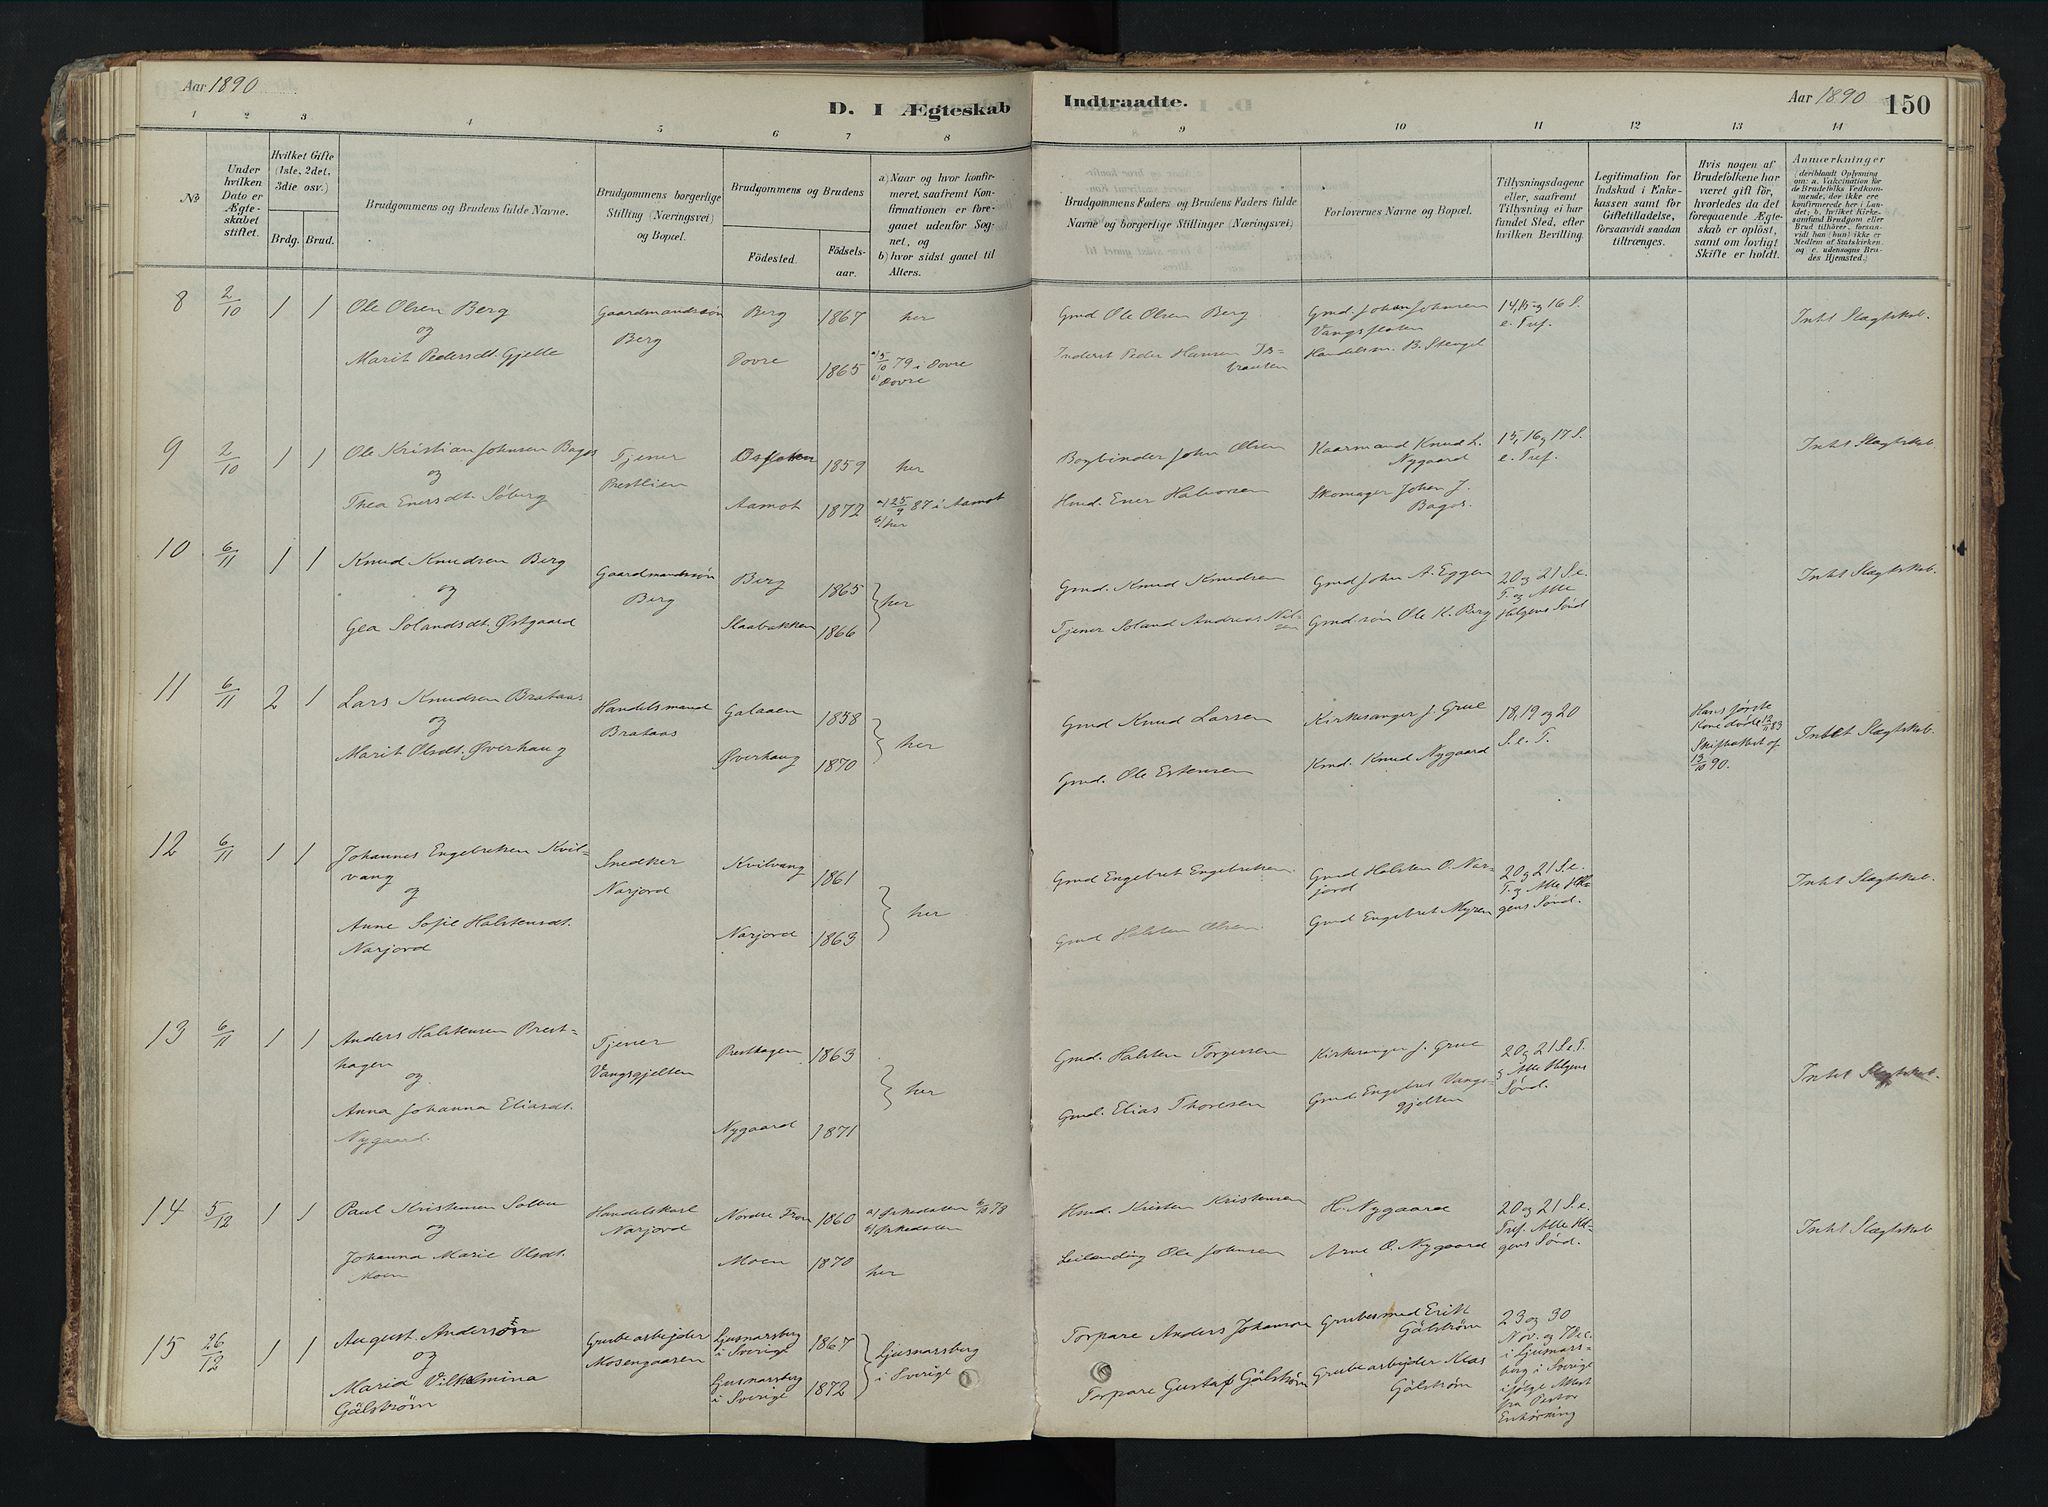 Aar 1890
D. I Ægteskab
Indtraadte.
Aar 1890
150
1 2 3 4 5 6 7 8 9 10 11 12 13 14
No
Under hvilken Dato er Ægteskabet stiftet.
Hvilket Gifte (1ste, 2det, 3die osv.)
Brdg. Brud.
Brudgommens og Brudens fulde Navne.
Brudgommens borgerlige Stilling (Næringsvei) og Bopæl.
Brudgommens og Brudens
Födested.
Födselsaar.
a) Naar og hvor konfirmeret, saafremt Konfirmationen er foregaaet udenfor Sognet, og
b) hvor sidst gaaet til Alters.
Brudgommens Faders og Brudens Faders fulde Navne og borgerlige Stillinger (Næringsvei)
Forlovernes Navne og Bopæl.
Tillysningsdagene eller, saafremt Tillysning ei har fundet Sted, efter hvilken Bevilling
Legitimation for Indskud i Enkekassen samt for Giftetilladelse, forsaavidt saadan tiltrænges.
Hvis nogen af Brudefolkene har været gift för, hvorledes da det foregaaende Ægteskab er oplöst, samt om lovligt Skifte er holdt.
Anmærkninger (deriblandt Oplysning om: a. Vakcination for de Brudefolks Vedkommende, der ikke ere konfirmerede her i Landet; b. hvilket Kirkesamfund Brudgom eller Brud tilhörer, forsaavidt han (hun) ikke er Medlem af Statskirken, og c. udensogns Brudes Hjemsted.)
8 2/10 1 1 Ole Olsen Berg Gaardmandssøn Berg 1867 her Gmd Ole Olsen Berg. Gmd. Johan Johnsen 14, 15 og 16 S. Intet Slægtskab.
og Berg Vangsfloten e. Tref.
Marit Pedersdt. Gjelle Dovre 1865 a) 5/10 79 i Dovre Inderst Peder Hansen Handelsm. B. Stengel
b) Dovre
9 2/10 1 1 Ole Kristian Johnsen Bagos Tjener 1859 her Bogbinder John Olsen Kaarmand Knud L. 15, 16 og 17 S. Intet Slægtskab.
og Prestlien Nygaard e. Tref.
Thea Enersdt. Søberg Aamot 1872 a) 25/9 87 i Aamot Hmd. Ener Halvorsen Skomager Johan J.
b) her Bagos.
10 6/11 1 1 Knud Knudsen Berg Gaardmandssøn Berg 1865 her Gmd. Knud Knudsen Gmd John A. Eggen 20 og 21 S. e. Intet Slægtskab.
og Berg T. og Alle
Gea Solandsdt. Østgaard Slaabakken 1866 Tjener Soland Andreas Nilsen Gmd.søn Ole K. Berg Helgens Sønd
11 6/11 2 1 Lars Knudsen Brataas Handelsmand Galaaen 1858 her Gmd Knud Larsen Kirkesanger J. Grue 18, 19 og 20 Hans første Intet Slægtskab.
og Brataas S. e. T. Kone døde 12/11 83
Marit Olsdt. Øverhaug Øverhaug 1870 Gmd. Ole Estensen Kmd. Knud Nygaard Skifteattest af
13/10 90.
12 6/11 1 1 Johannes Engebretsen Kvil- Snedker Kvilvang 1861 her Gmd Engebret Engebretsen Gmd Halsten O. Nar- 20 og 21 S. e. Intet Slægtskab.
vang Narjord jord T. og Alle Hel-
og
Anne Sofie Halstensdt. Narjord 1863 Gmd Halsten Olsen Gmd Engebret Myren gens Sønd.
Narjord
13 6/11 1 1 Anders Halstensen Prest- Tjener Presthagen 1863 her Gmd. Halsten Torgersen Kirkesanger J. Grue 20 og 21 S. e. T. Intet Slægtskab.
hagen Vangsgjelten og Alle Helgens
og Gmd. Engebret Vangs- Sønd.
Anna Johanna Eliasdt. Nygaard 1871 Gmd. Elias Thoresen gjelten
Nygaard.
14 5/12 1 1 Paul Kristensen Solbu Handelskarl Nordre Fron 1860 a) Ørkedalen 6/10 78 Hmd. Kristen Kristensen H. Nygaard 20 og 21 S. e. Intet Slægtskab.
og Narjord b) Ørkedalen Tref. Alle Hel-
Johanna Marie Olsdt. Moen 1870 her Leilending Ole Johnsen Arne O. Nygaard gens Sønd.
Moen
15 26/12 1 1 August Anderson Grubearbejder Ljusnarsberg i Sverige 1867 Ljusnarsberg i Sverige Torpare Anders Johanson Grubesmed Erik 23 og 30
og Mosengaasen Gålstrøm Nov. og 7 Dec.
Maria Vilhelmina Ljusnarsberg i Sverige 1872 Torpare Gustaf Gålstrøm Grubearbejder Klas i Ljusnars-
Gålstrøm Gålstrøm berg i Sverige
ifølge Attest
fra Pastor
Enhörning